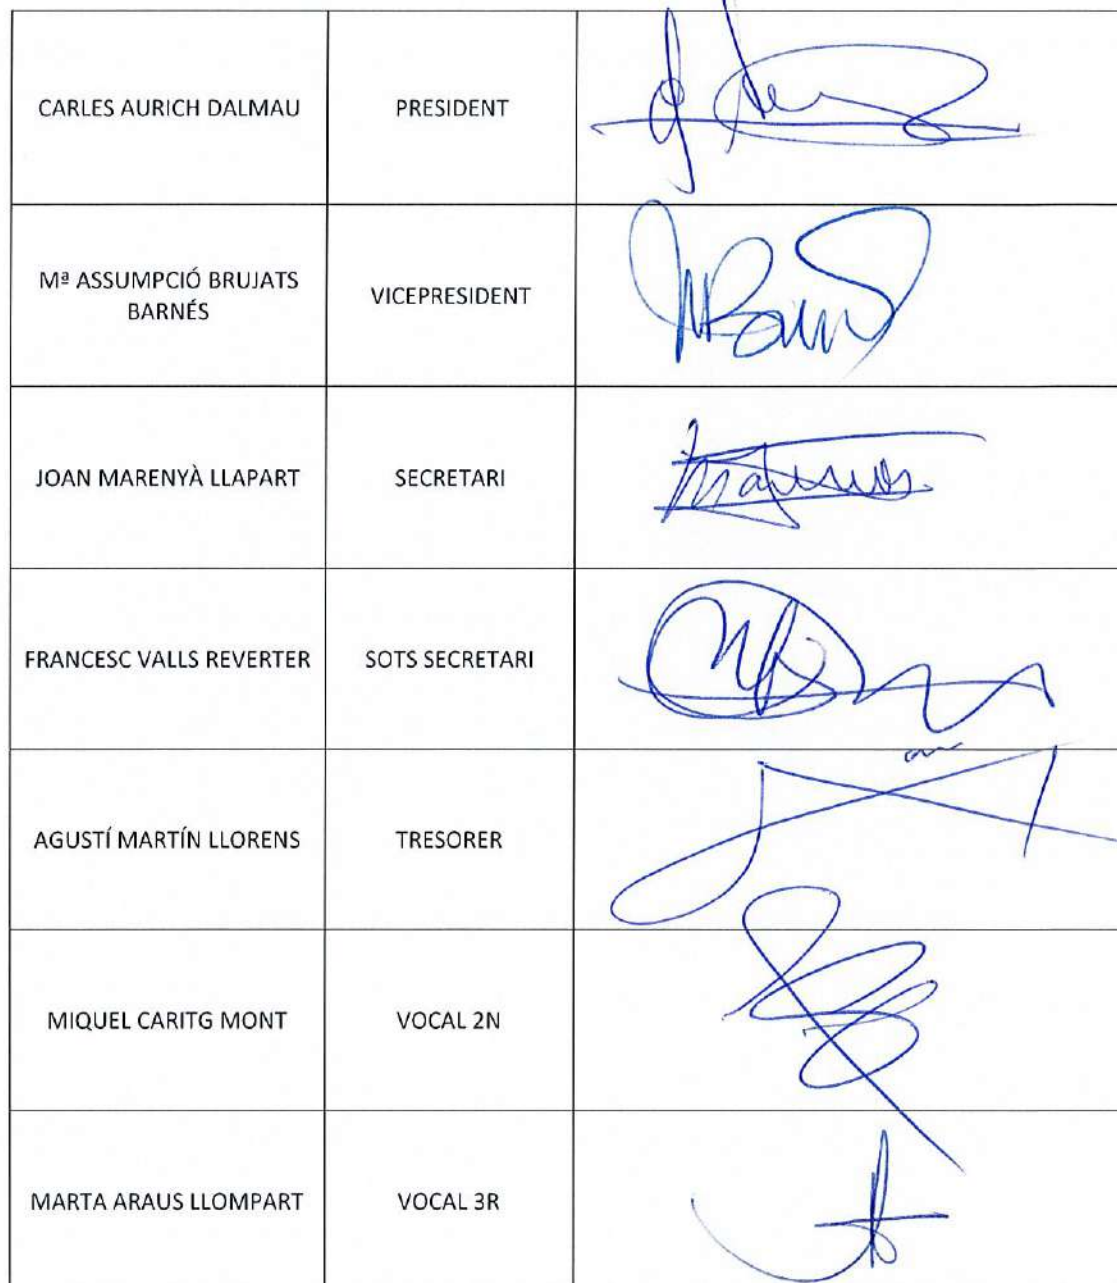 CARLES AURICH DALMAU PRESIDENT
Mª ASSUMPCIÓ BRUJATS
BARNÉS VICEPRESIDENT
JOAN MARENYÀ LLAPART SECRETARI
FRANCESC VALLS REVERTER SOTS SECRETARI
AGUSTÍ MARTÍN LLORENS TRESORER
MIQUEL CARITG MONT VOCAL 2N
MARTA ARAUS LLOMPART VOCAL 3R